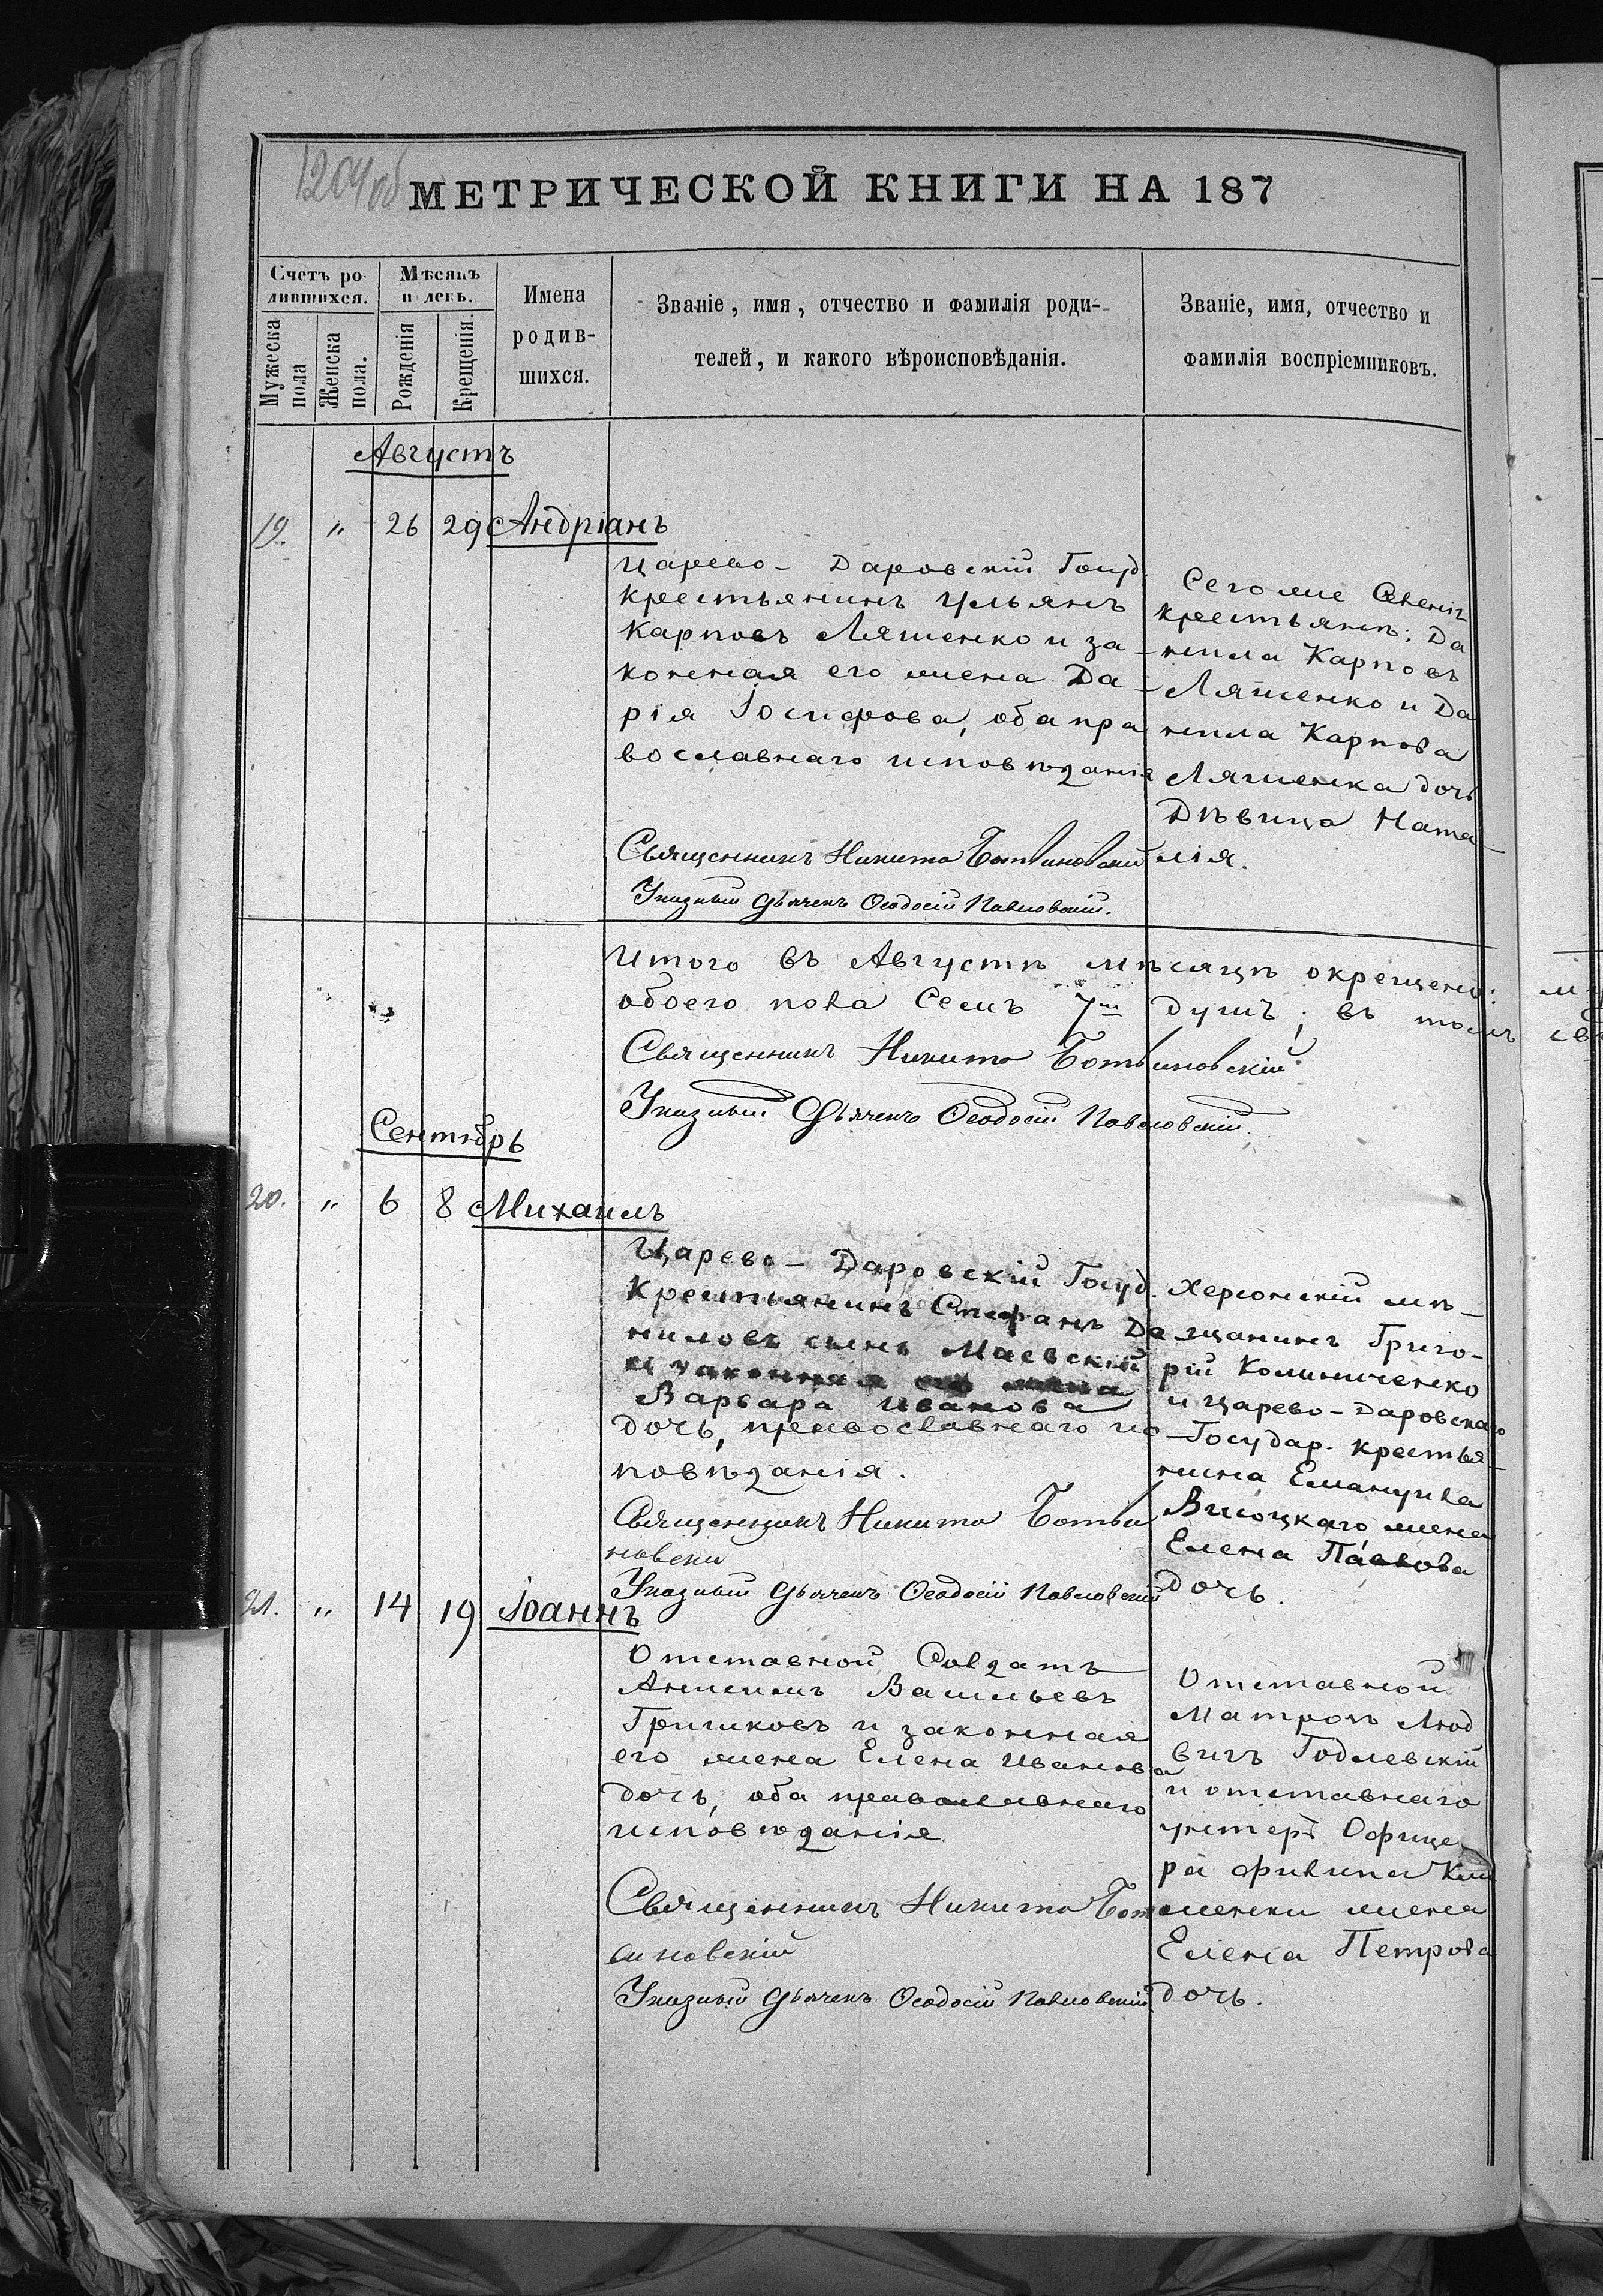 1204об
МЕТРИЧЕСКОЙ КНИГИ НА 187
Счетъ ро-
дившихся.
Мужеска
пола
Женска
пола.
Мѣсяцъ
и день.
Рожденія
Крещенія.
Имена
родив-
шихся.
Званіе, имя, отчество и фамилія роди-
телей, и какого вѣроисповѣданія.
Званіе, имя, отчество и
фамилія воспріемниковъ.
Августъ
19. " 26 29 Андріанъ
Царево-Даровскій Госуд.
крестьянинъ Ульянъ
Карповъ Ляшенко и за-
конная его жена Да-
рія Іосифова, оба пра
вославнаго исповѣданія
Священникъ Никита Ботвиновскій
Указный Дьячекъ Ѳеодосій Павловскій.
Сегоже
крестьян: Да
нила Карповъ
Ляшенко и Да
нила Карпова
Ляшенка дочь
Дѣвица Ната-
лія.
Итого въ Августѣ мѣсяцѣ окрещено:
обоего пола Семъ 7ми душъ; въ томъ
Священникъ Никита Ботвиновскій
Указный Дьячекъ Ѳеодосій Павловскій.
Сентябрь
20. " 6 8 Михаилъ
Царево-Даровскій Госуд.
Крестьянинъ Стефанъ Да
ниловъ сынъ Маевскій
и законная его жена
Варвара Иванова
дочь, православнаго ис
повѣданія.
Священникъ Никита Ботви
новскій
Указный Дьячекъ Ѳеодосій Павловскій
Херсонскій мѣ-
щанинъ Григо-
рій Колиниченко
и Царево-Даровскаго
Государ. крестья-
нина Емануила
Висоцкаго жена
Елена Павлова
дочь.
21. " 14 19 Іоаннъ
Отставной Солдатъ
Анисимъ Васильевъ
Гришковъ и законная
его жена Елена Иванова
дочь, оба православнаго
исповѣданія
Священникъ Никита Бот
виновскій
Указный Дьячекъ Ѳеодосій Павловскій
Отставной
Матрозъ Люд
вигъ Годлевскій
и отставнаго
унтеръ Офице
ра Филипа
жена
Елена Петрова
дочь.